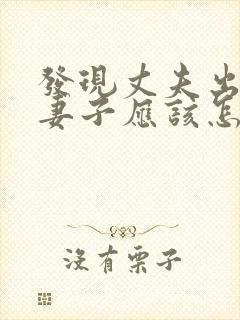 發現丈夫出
妻子應該怎
沒有栗子